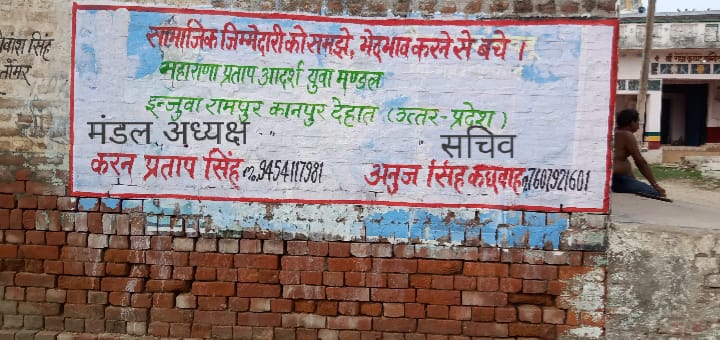 सामाजिक जिम्मेदारी को समझे, भेदभाव करने से बचे ।
महाराणा प्रताप आदर्श युवा मण्डल
इन्जुवा रामपुर कानपुर देहात (उत्तर-प्रदेश)
मंडल अध्यक्ष " सचिव
करन प्रताप सिंह मो. 9454117981 अनुज सिंह कछवाह 7607921601
सिंह
तोमर